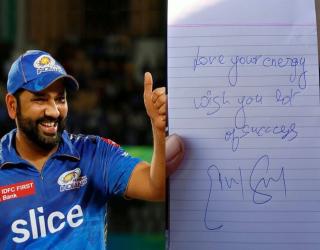 IDFC FIRST
Bank
slice
Love your energy
wish you lot
of success